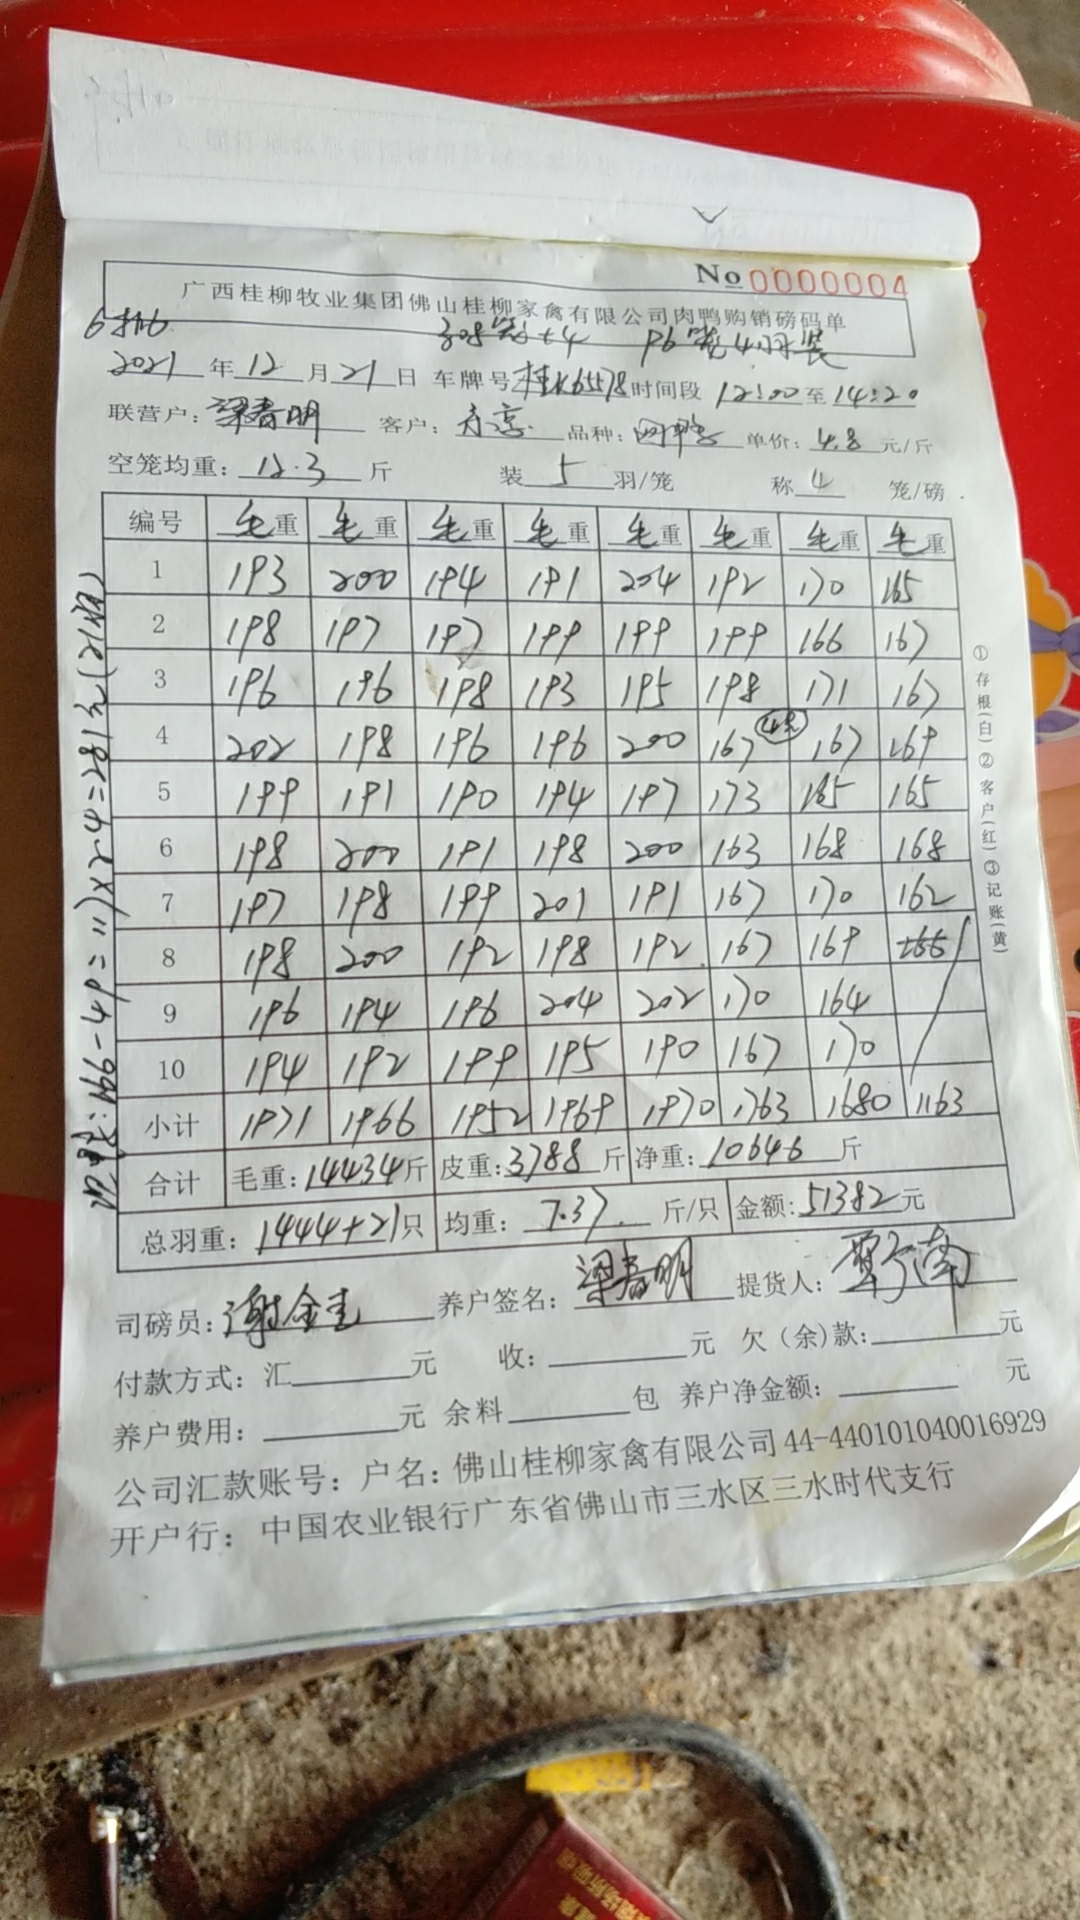 No 0000004
广西桂柳牧业集团佛山桂柳家禽有限公司肉鸭购销磅码单
308笼+4 96笼4羽装
2021年12月21日 车牌号桂K65578时间段12:00至14:20
联营户:梁春明 客户: 品种: 单价:4.8元/斤
空笼均重:12.3斤 装5羽/笼 称4笼/磅
编号 毛重 毛重 毛重 毛重 毛重 毛重 毛重 毛重
1 193 200 194 191 204 192 170 165
2 198 197 197 199 199 199 166 167
3 196 196 198 193 195 198 171 167
4 202 198 196 196 200 167 167 169
5 199 191 190 194 197 173 165 165
6 198 200 191 198 200 163 168 168
7 197 198 199 201 191 167 170 162
8 198 200 192 198 192 167 169
9 196 194 196 204 202 170 164
10 194 192 199 195 190 167 170
小计 1971 1966 1952 1969 1970 1763 1680 1163
合计 毛重:14434斤 皮重:3788斤 净重:10646斤
总羽重:1444+21只 均重:7.37斤/只 金额:51382元
司磅员:谢金 养户签名:梁春明 提货人:
付款方式:汇 元 收: 元 欠(余)款: 元
养户费用: 元 余料 包 养户净金额: 元
公司汇款账号:户名:佛山桂柳家禽有限公司44-440101040016929
开户行:中国农业银行广东省佛山市三水区三水时代支行
①存根(白)②客户(红)③记账(黄)
:166-49=117×2.4=281元(21只)